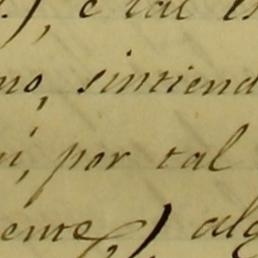 .), é tal es
no, sintiend
i, por tal
ente) alg